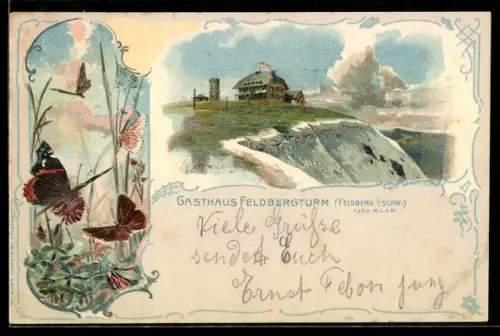 GASTHAUS FELDBERGTURM (FELDBERG I/SCHW.)
Viele Grüße
sendet Euch
Ernst Febon jung